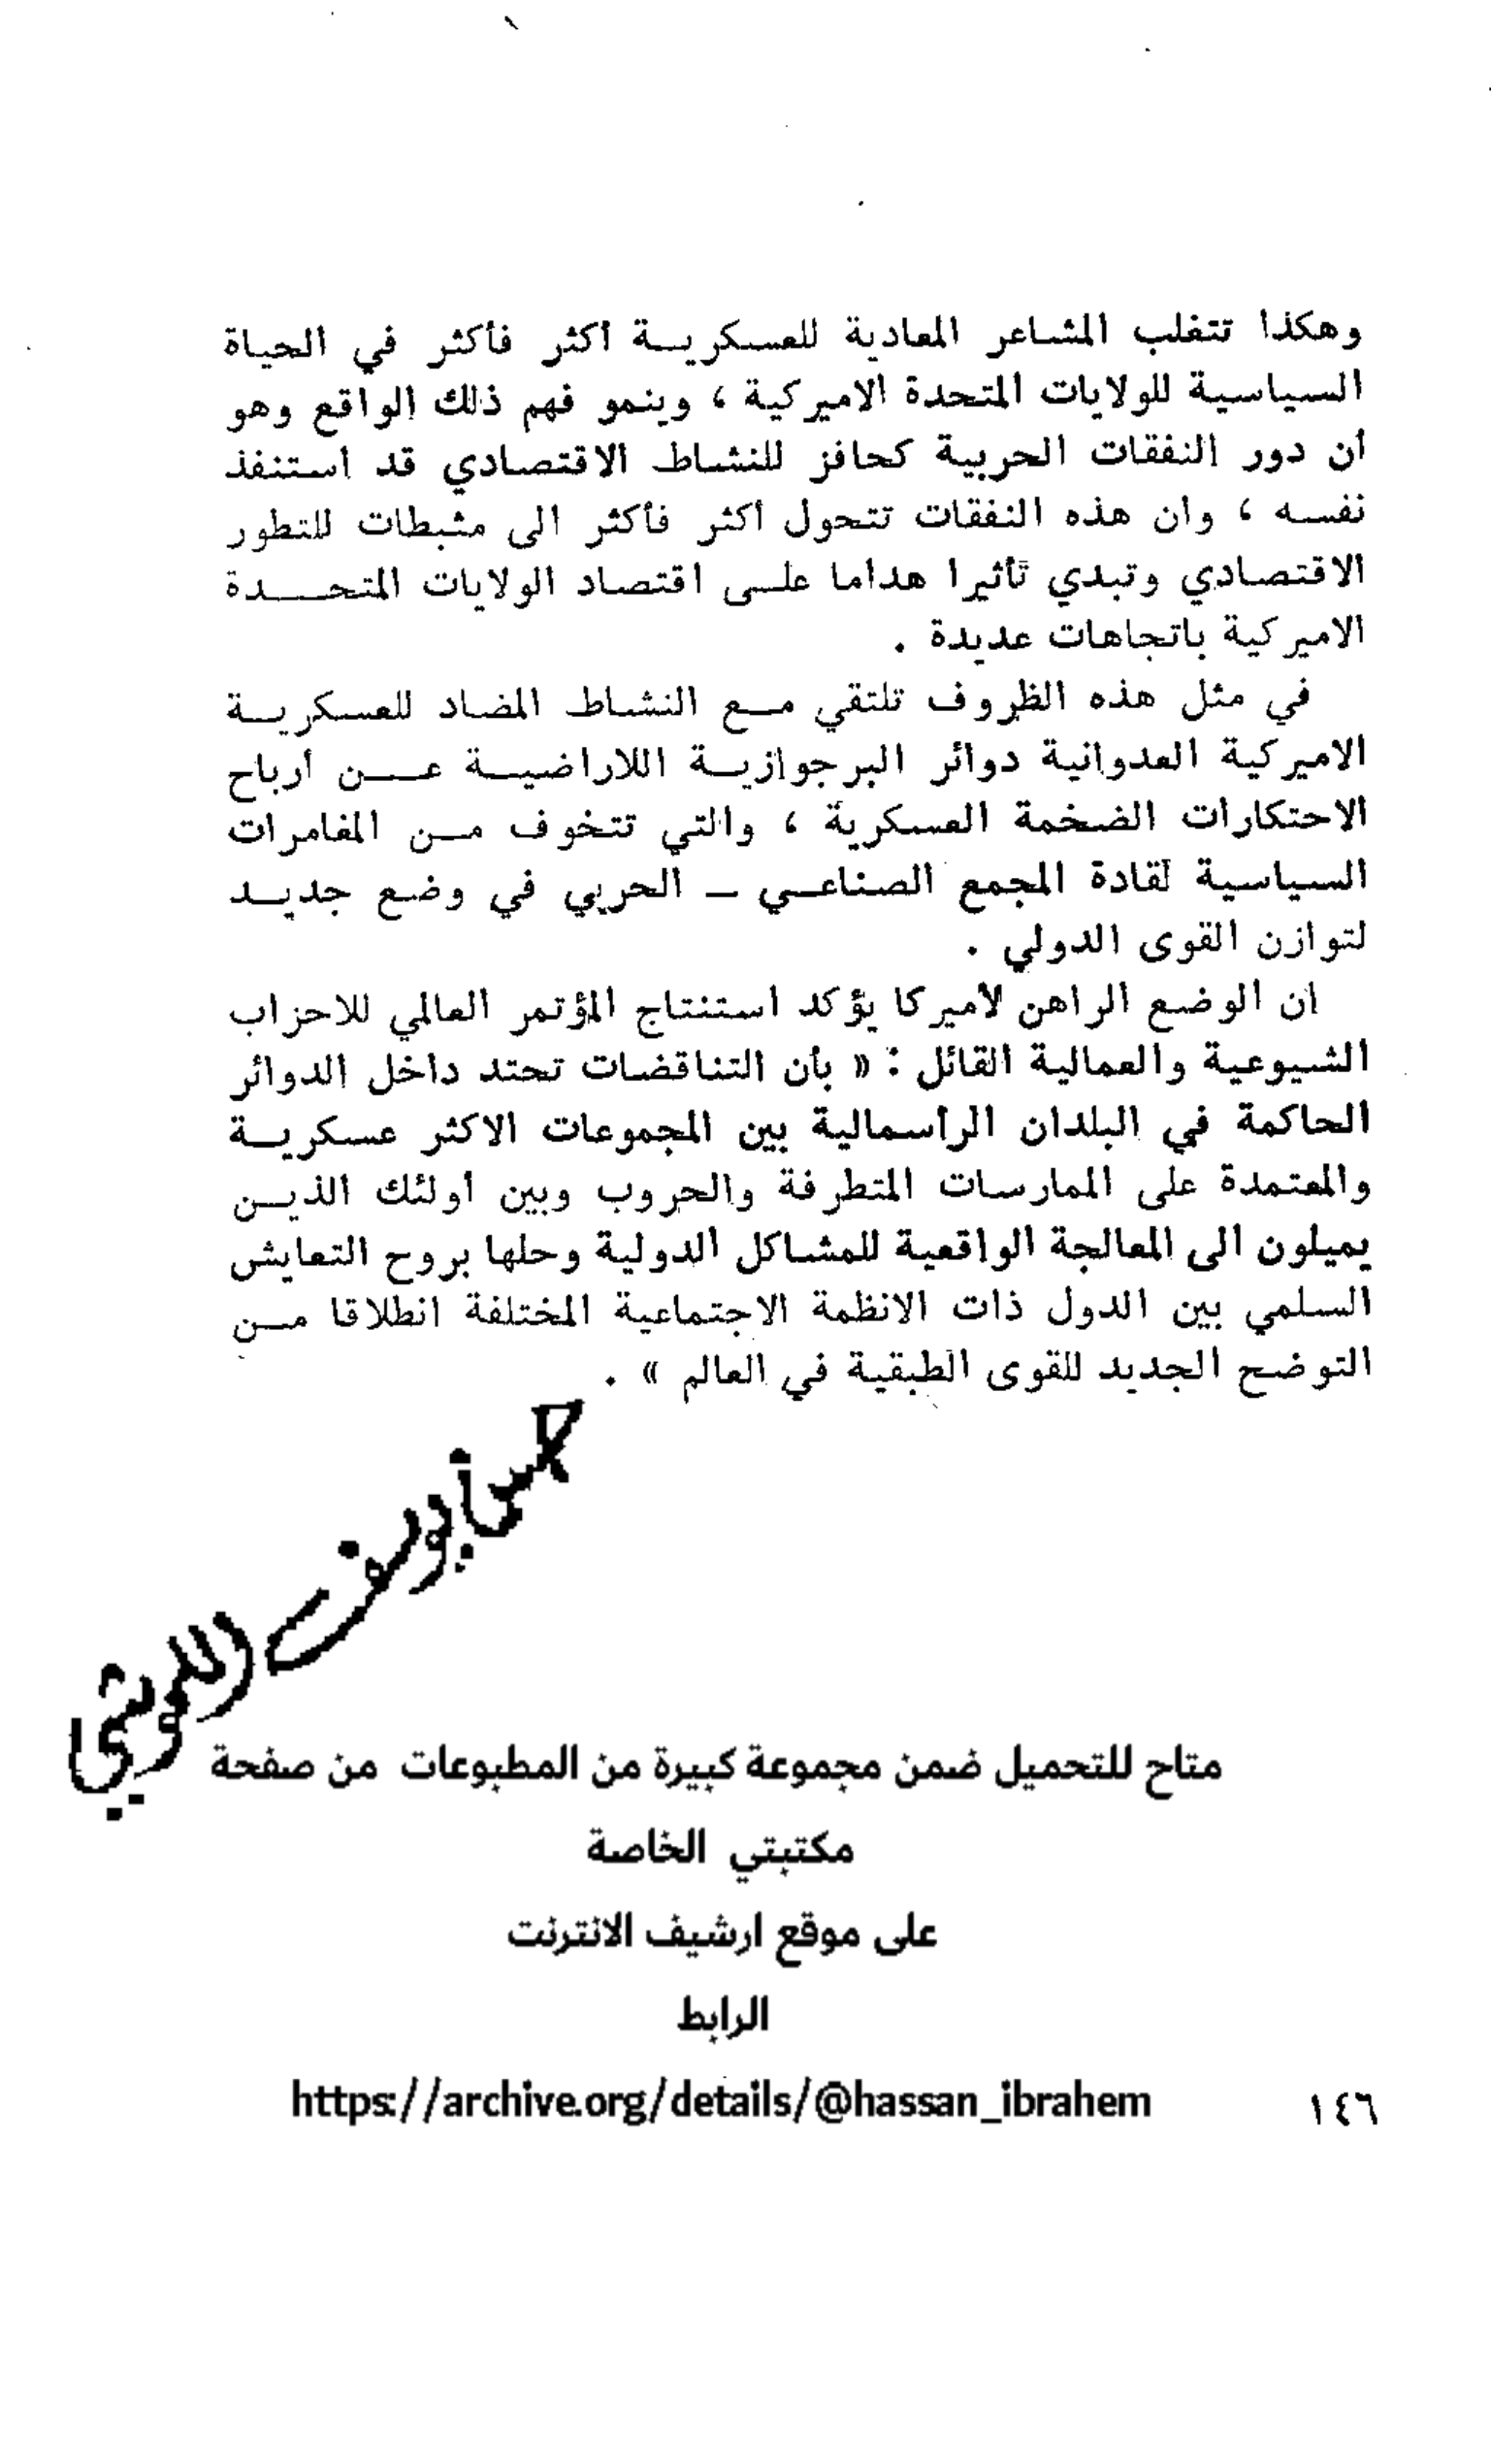 وهكذا تتغلب المشاعر المعادية للعسكرية أكثر فأكثر في الحياة
السياسية للولايات المتحدة الاميركية ، وينمو فهم ذلك الواقع وهو
أن دور النفقات الحربية كحافز للنشاط الاقتصادي قد استنفذ
نفسه ، وان هذه النفقات تتحول أكثر فأكثر الى مثبطات للتطور
الاقتصادي وتبدي تأثيرا هداما على اقتصاد الولايات المتحدة
الاميركية باتجاهات عديدة .
في مثل هذه الظروف تلتقي مع النشاط المضاد للعسكرية
الاميركية العدوانية دوائر البرجوازية اللاراضية عن أرباح
الاحتكارات الضخمة العسكرية ، والتي تتخوف من المغامرات
السياسية لقادة المجمع الصناعي – الحربي في وضع جديد
لتوازن القوى الدولي .
ان الوضع الراهن لأميركا يؤكد استنتاج المؤتمر العالمي للاحزاب
الشيوعية والعمالية القائل : « بأن التناقضات تحتد داخل الدوائر
الحاكمة في البلدان الرأسمالية بين المجموعات الاكثر عسكرية
والمعتمدة على الممارسات المتطرفة والحروب وبين أولئك الذين
يميلون الى المعالجة الواقعية للمشاكل الدولية وحلها بروح التعايش
السلمي بين الدول ذات الانظمة الاجتماعية المختلفة انطلاقا من
التوضح الجديد للقوى الطبقية في العالم » .
متاح للتحميل ضمن مجموعة كبيرة من المطبوعات من صفحة
مكتبتي الخاصة
على موقع ارشيف الانترنت
الرابط
https://archive.org/details/@hassan_ibrahem
١٤٦